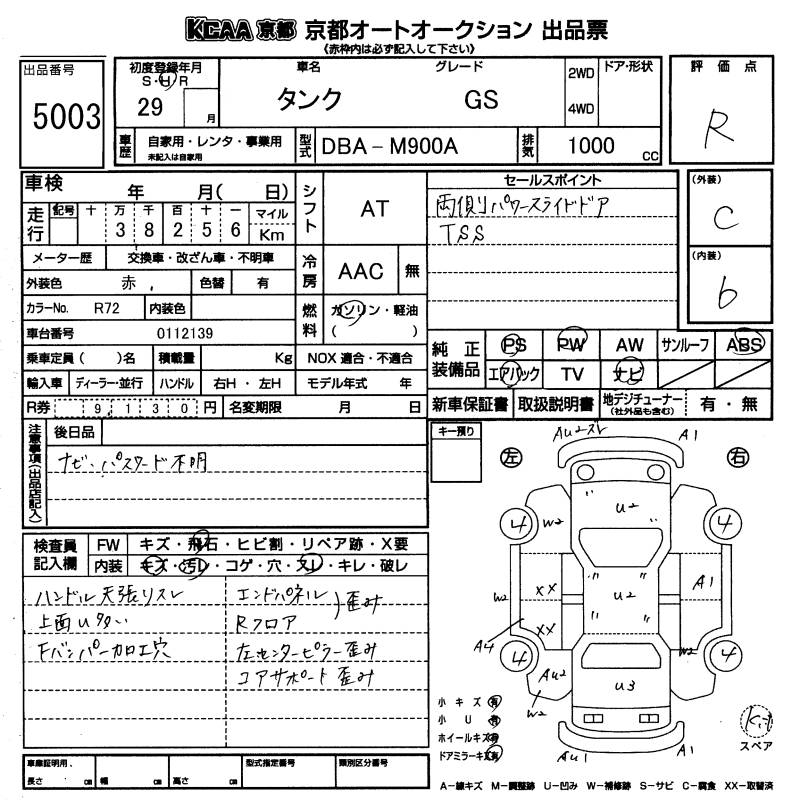 KCAA 京都 京都オートオークション 出品票
《赤枠内は必ず記入して下さい》
出品番号
5003
初度登録年月
S・H・R
29 月
車名
タンク
グレード
GS
2WD
4WD
ドア・形状
評価点
R
車歴
自家用・レンタ・事業用
未記入は自家用
型式
DBA-M900A
排気
1000 cc
車検 年 月( 日)
走行
記号 十 万 千 百 十 一 マイル
3 8 2 5 6 Km
シフト
AT
セールスポイント
両側パワースライドドア
TSS
(外装)
C
(内装)
b
メーター歴 交換車・改ざん車・不明車
外装色 赤 色替 有
冷房
AAC 無
カラーNo. R72 内装色
燃料
ガソリン・軽油
( )
車台番号 0112139
乗車定員( )名 積載量 Kg NOX適合・不適合
輸入車 ディーラー・並行 ハンドル 右H・左H モデル年式 年
R券 9,130円 名変期限 月 日
純正装備品
PS PW AW サンルーフ ABS
エアバック TV ナビ
新車保証書 取扱説明書 地デジチューナー(社外品も含む) 有・無
注意事項(出品店記入)
後日品
ナビ・パスワード不明
キー預り
検査員記入欄
FW キズ・飛石・ヒビ割・リペア跡・X要
内装 キズ・汚レ・コゲ・穴・スレ・キレ・破レ
ハンドル 天張リスレ
上面U多い
Fバンパー加工穴
エンドパネル
Rフロア
歪み
左センターピラー歪み
コアサポート歪み
左
右
AU2ズレ
A1
U2
4
4
W2
W2
XX
XX
U2
A1
A4
4
4
AU2
W2
W2
U3
AU1
A1
小キズ 有
小U 有
ホイールキズ 有
ドアミラーキズ 有
Kit
スペア
車庫証明用、
長さ cm 幅 cm 高さ cm
型式指定番号
類別区分番号
A-線キズ M-調整跡 U-凹み W-補修跡 S-サビ C-腐食 XX-取替済